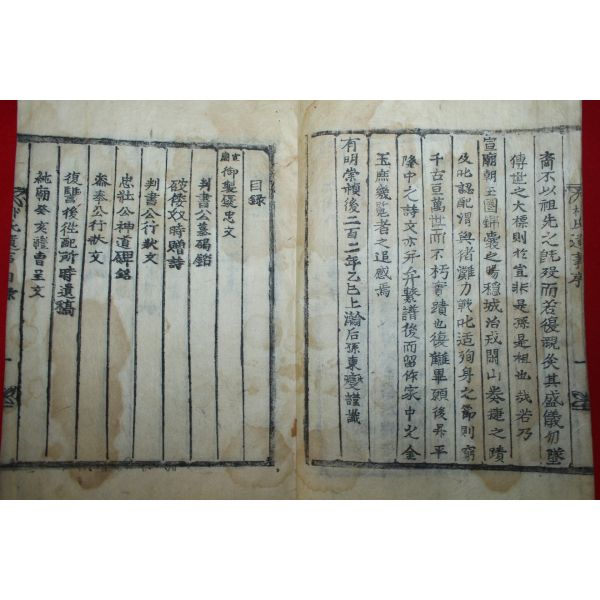 裔不以祖先之旣歿而若復覩矣其盛儀勿墜
傳世之大標則於宜非是孫是祖也哉若乃
宣廟朝玉圈錦囊之賜穩城治戎閑山奏捷之蹟
與渚灘力戰 殉身之節則窮
千古亘萬世而不朽實蹟也後 畢願後 平
隆中之詩文亦并幷繫譜後而留作家中 金
玉庶幾覽者之追感焉
有明崇禎後二百二年乙巳上瀚后孫東燮謹識
目錄
宣廟御製褒忠文
判書公墓碣銘
破倭奴時贈詩
判書公行狀文
忠壯公神道碑銘
參奉公行狀文
復讐後徙配所時遺稿
純廟癸亥禮曹呈文